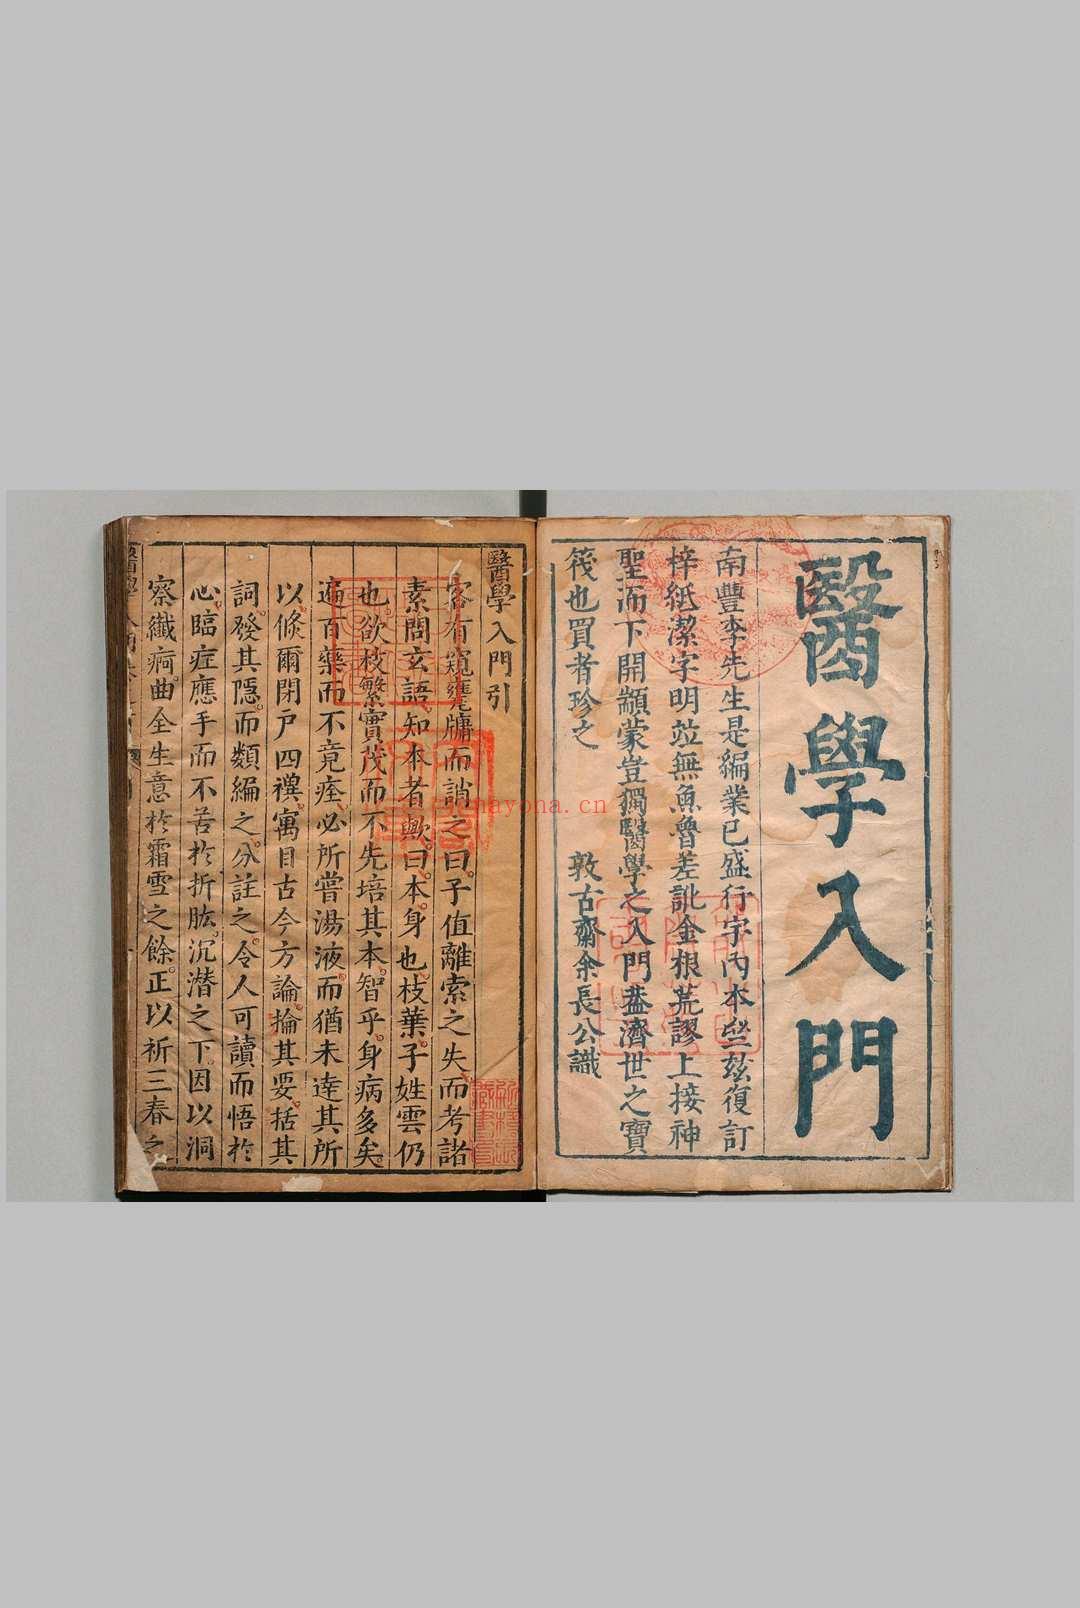 醫學入門
南豐李先生是編業已盛行宇內本堂玆復訂
梓紙潔字明竝無魚魯差訛金根荒謬上接神
聖而下開顓蒙豈獨醫學之入門葢濟世之寶
筏也買者珍之
敦古齋余長公識
醫學入門引
客有窺甕牖而誚之曰子值離索之失而考諸
素問玄語知本者歟曰本身也枝葉子姓雲仍
也欲枝繁實茂而不先培其本智乎身病多矣
遍百藥而不竟痊必所嘗湯液而猶未達其所
以倐爾閉戸四禩寓目古今方論掄其要括其
詞發其隱而類編之分註之令人可讀而悟於
心臨症應手而不苦於折肱沉潜之下因以洞
察纖痾曲全生意於霜雪之餘正以祈三春之
nayona.cn